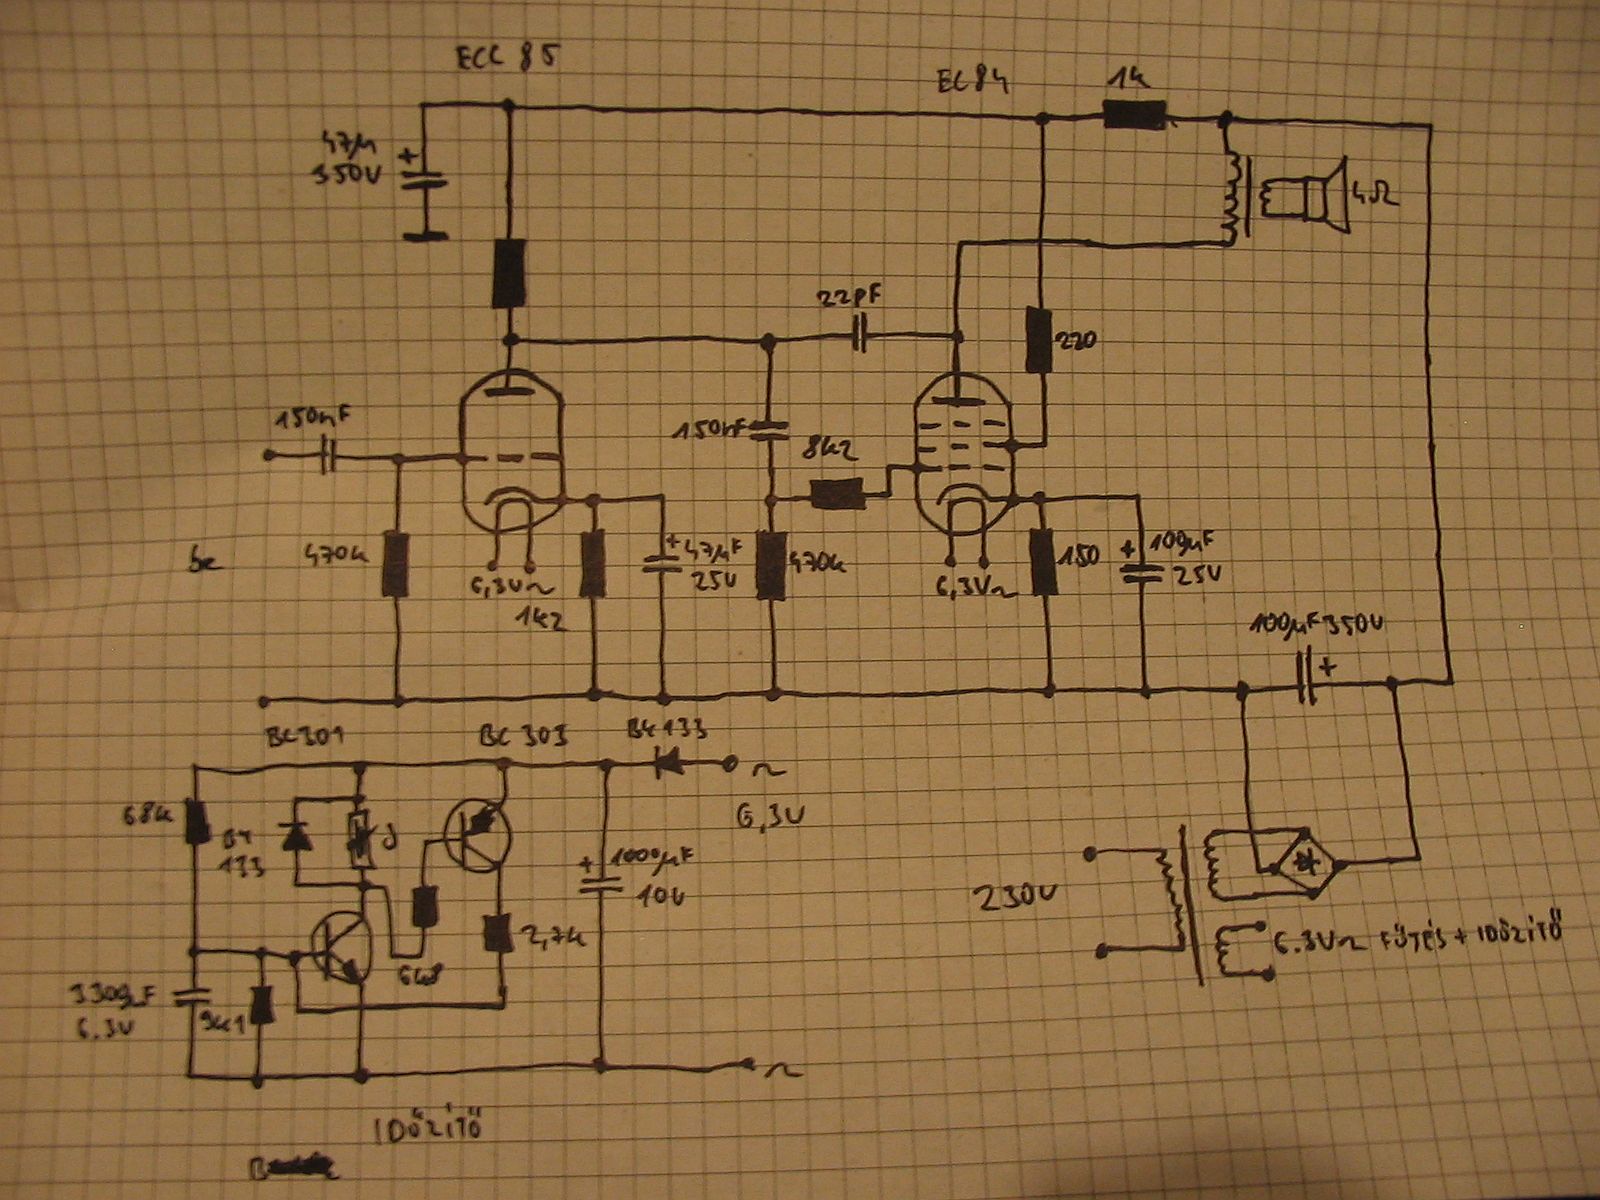 ECC 85
EL84
1k
47µ
350V
+
4Ω
22pF
220
150nF
150nF
8k2
be
470k
6,3V~
1k2
+
47µF
25V
470k
6,3V~
150
+
100µF
25V
100µF 350V
+
BC301
BC303
BY133
~
6,3V
68k
BY
133
J
+
1000µF
10V
2,7k
6k8
330µF
6.3V
9k1
~
230V
6.3V~ FŰTÉS + IDŐZÍTŐ
IDŐZÍTŐ